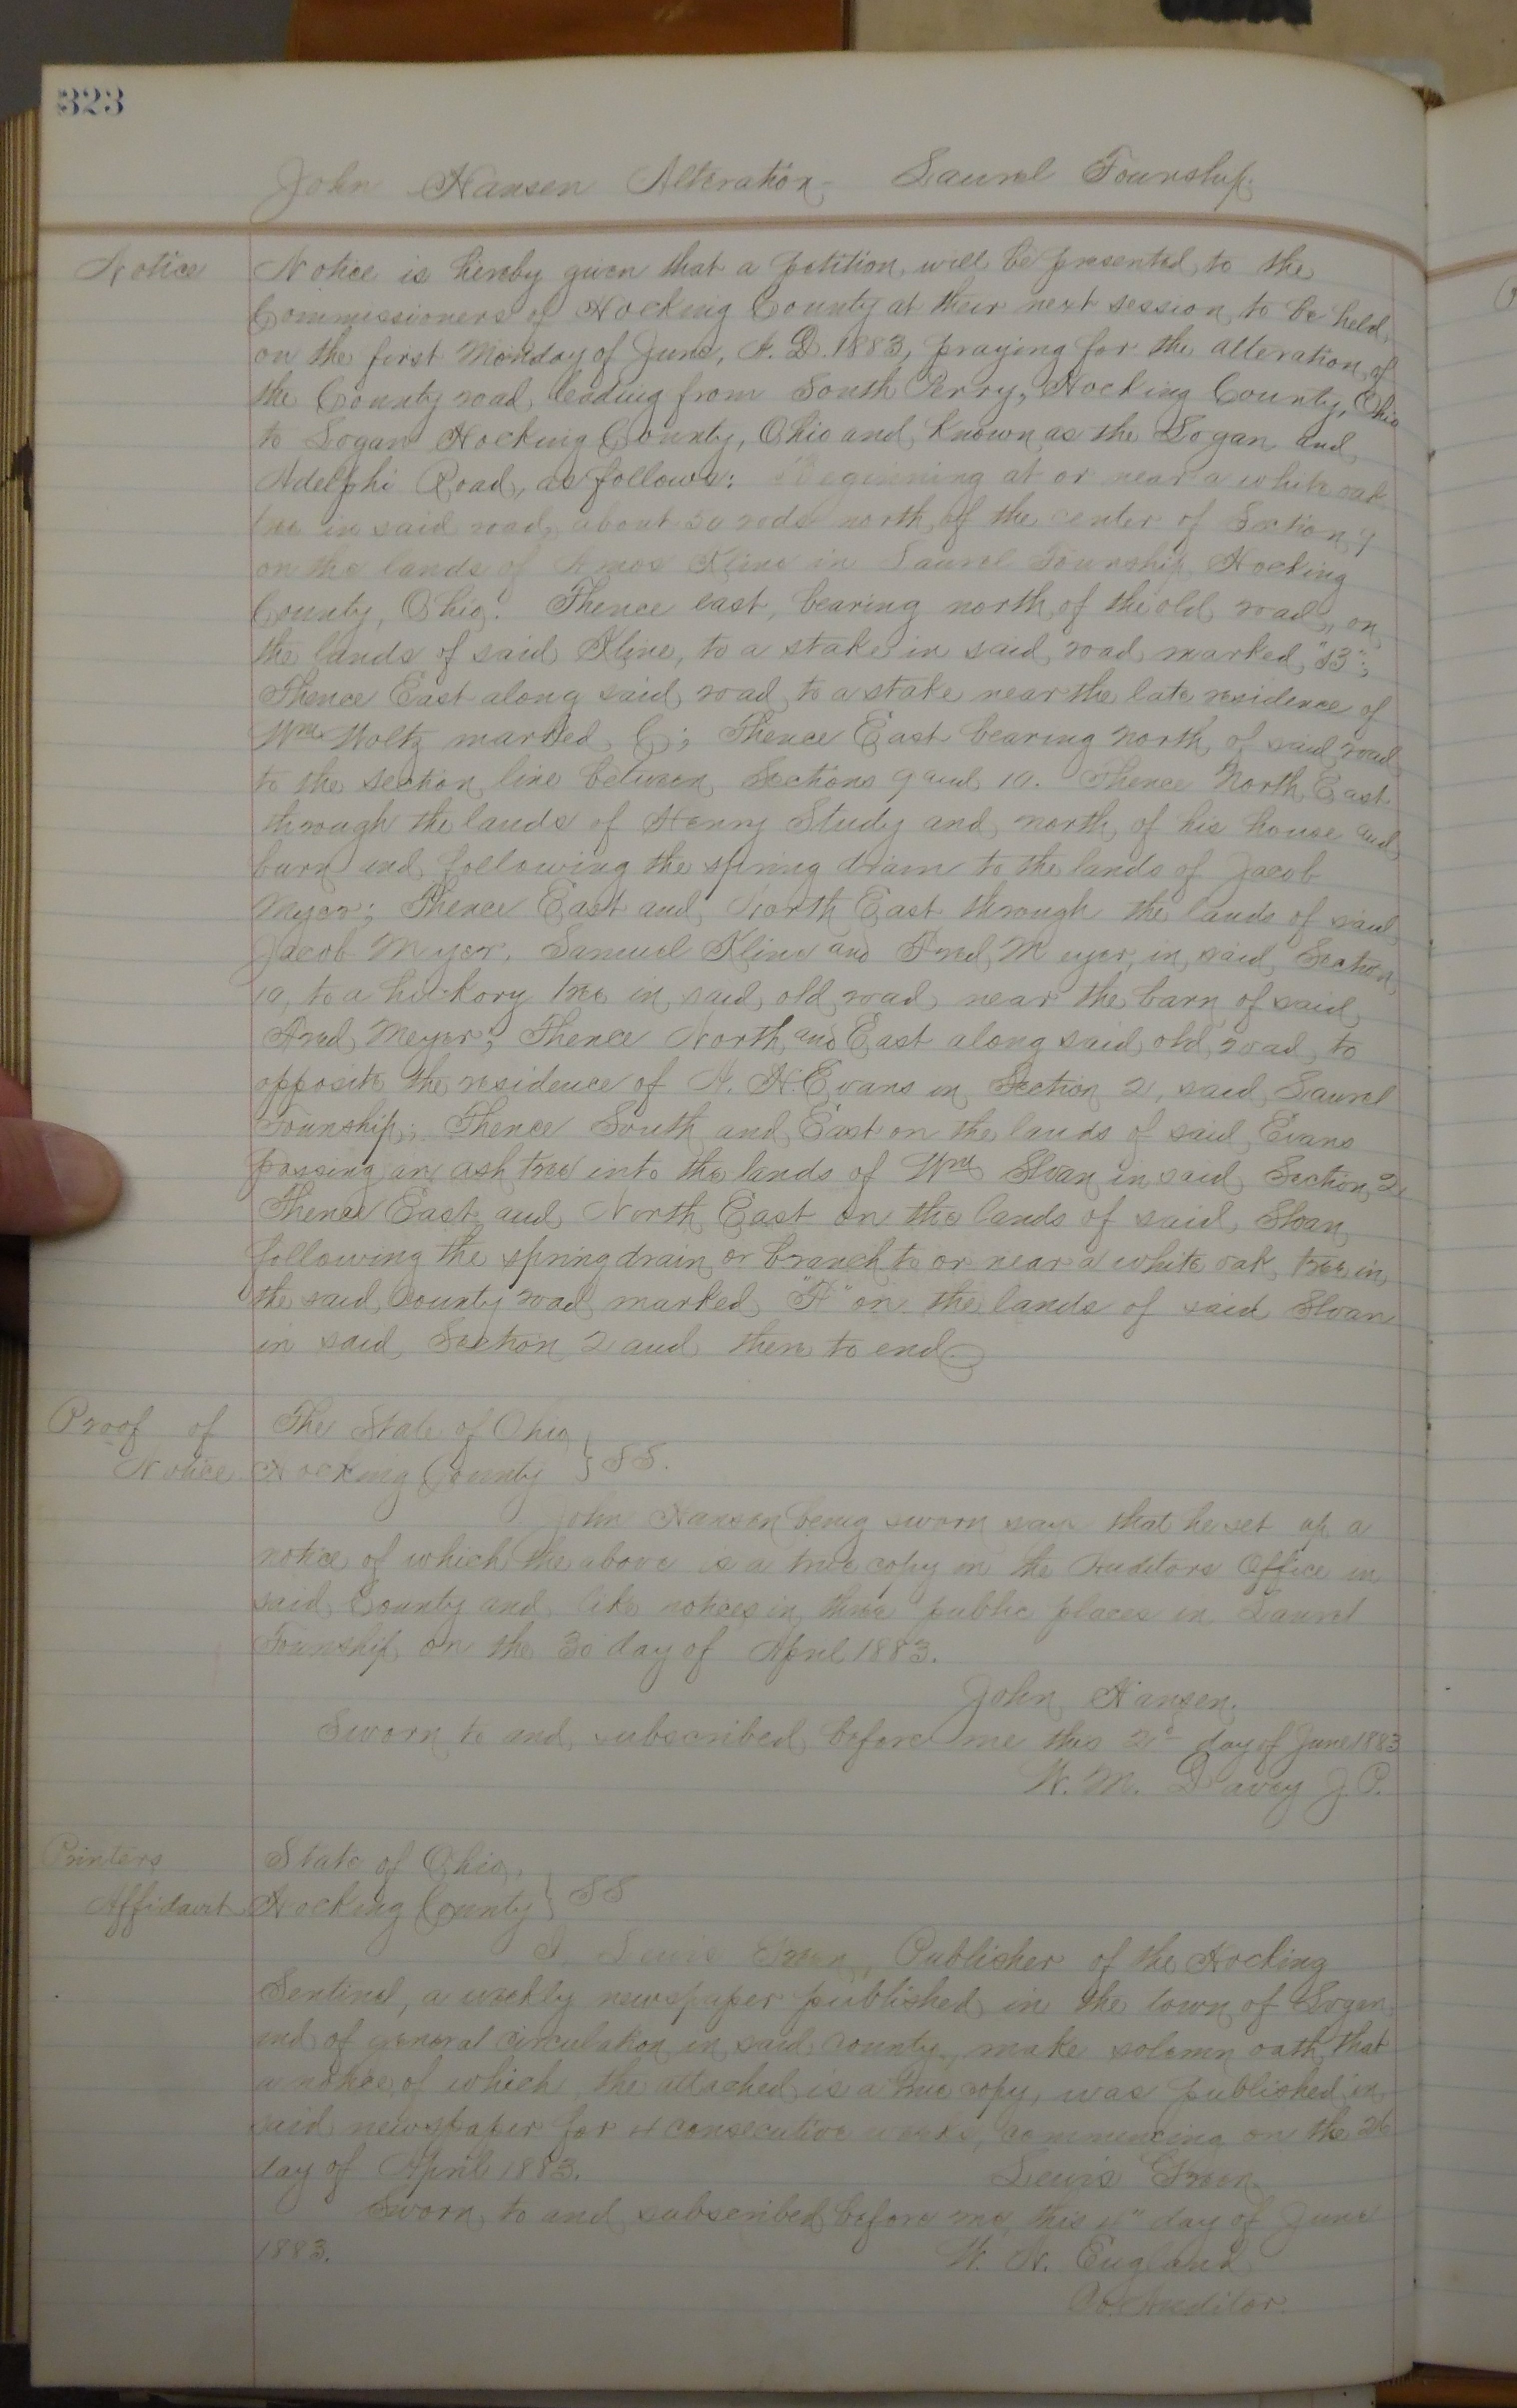 323
John Hansen Alteration - Laurel Township.
Notice
Notice is hereby given that a petition will be presented to the
Commissioners of Hocking County at their next session to be held
on the first Monday of June, A. D. 1883, praying for the alteration of
the County road leading from South Perry, Hocking County, Ohio
to Logan Hocking County, Ohio and known as the Logan and
Adelphi Road, as follows: Beginning at or near a white oak
tree in said road about 30 rods north of the center of Section 9
on the lands of Amos Kline in Laurel Township Hocking
County, Ohio. Thence east, bearing north of the old road, on
the lands of said Kline, to a stake in said road marked "B";
Thence East along said road to a stake near the late residence of
Wm Woltz marked C; Thence East bearing North of said road
to the section line between Sections 9 and 10. Thence North East
through the lands of Henry Study and north of his house and
barn and following the spring drain to the lands of Jacob
Meyer; Thence East and North East through the lands of said
Jacob Meyer, Samuel Kline and Fred Meyer, in said Section
10, to a hickory tree in said old road near the barn of said
Fred Meyer; Thence North and East along said old road to
opposite the residence of N. H. Evans in Section 2, said Laurel
Township; Thence South and East on the lands of said Evans
passing an ash tree into the lands of Wm Sloan in said Section 2
Thence East and North East on the lands of said Sloan
following the spring drain or branch to or near a white oak tree in
the said County road marked "A" on the lands of said Sloan
in said Section 2 and there to end
Proof of
Notice
The State of Ohio
Hocking County } SS.
John Hansen being sworn says that he set up a
notice of which the above is a true copy in the Auditors Office in
said County and like notices in three public places in Laurel
Township on the 30 day of April 1883.
John Hansen.
Sworn to and subscribed before me this 2d day of June 1883
W. M. Davey J. P.
Printers
Affidavit
State of Ohio,
Hocking County } SS
I Lewis Green, Publisher of the Hocking
Sentinel, a weekly newspaper published in the town of Logan
and of general circulation in said county, make solemn oath that
a notice of which the attached is a true copy, was published in
said newspaper for 4 consecutive weeks, commencing on the 26
day of April 1883.
Lewis Green
Sworn to and subscribed before me, this 4" day of June
1883.
W. N. England
Co. Auditor.